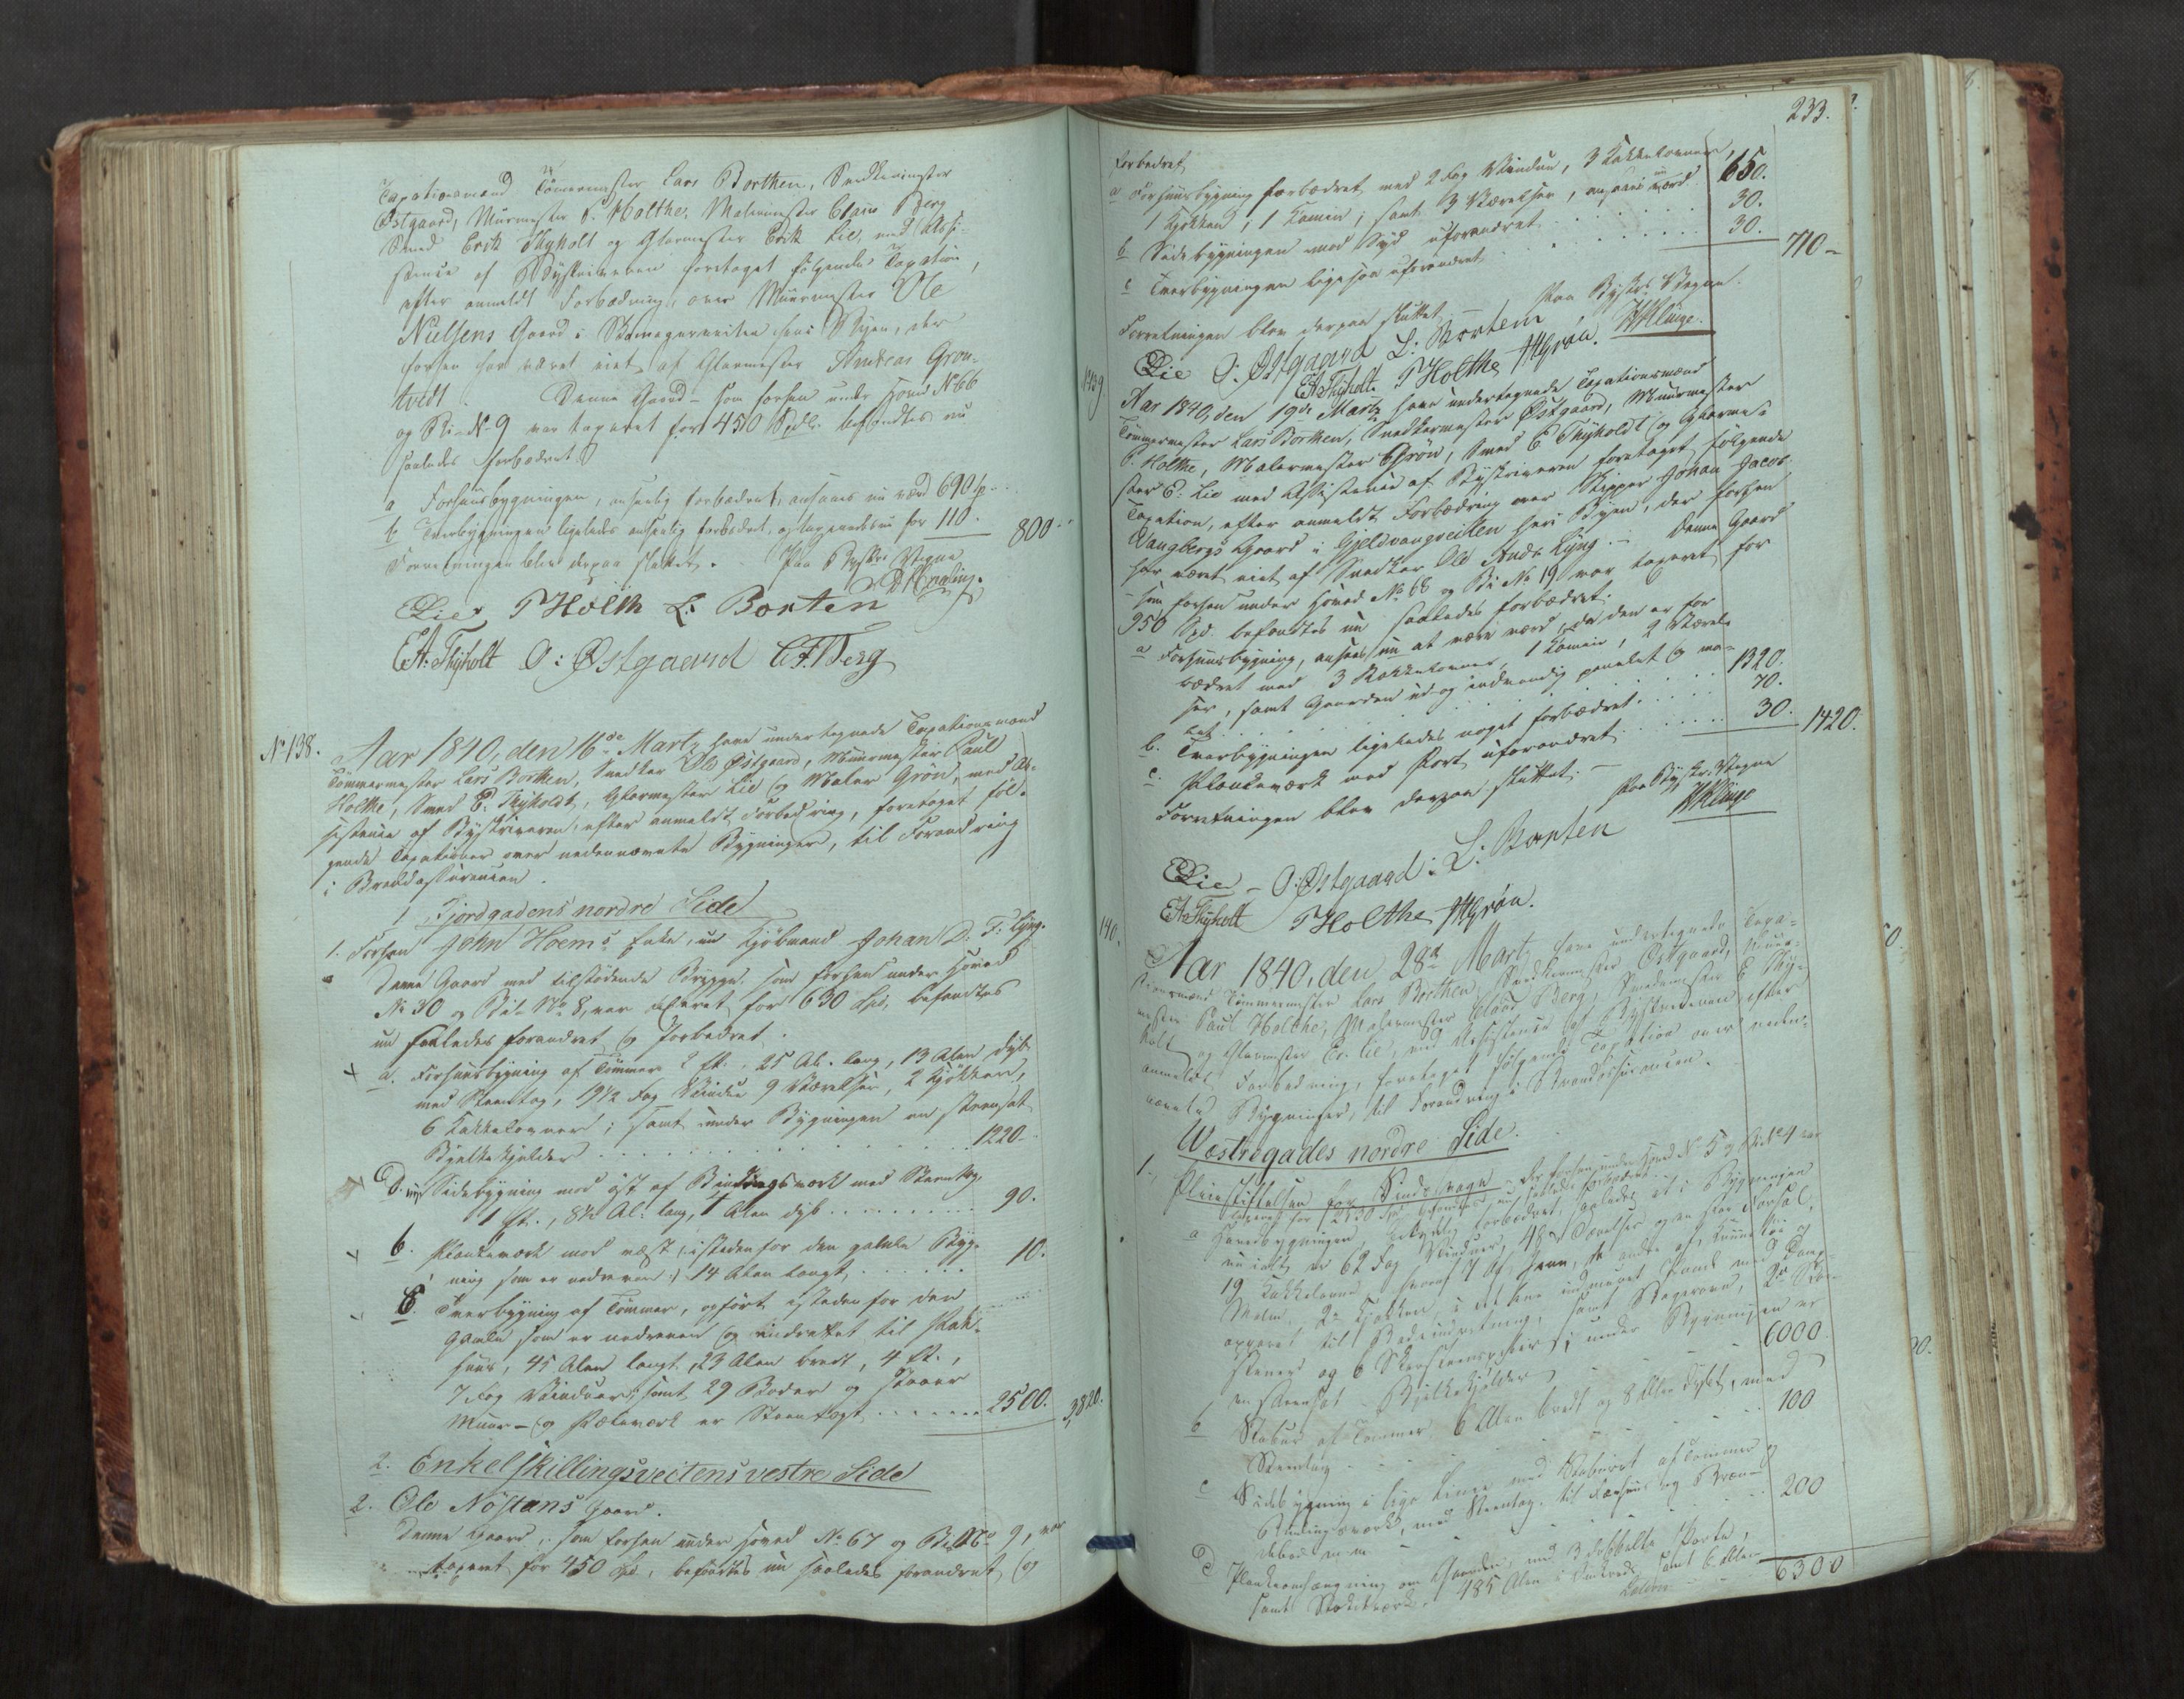 Taxationsmænd Tömermester Lars Borthen, Snedkermester
Östgaard, Murmester P. Holthe, Malermester Claus Berg
Smed Erik Thyholt og Glarmester Erik Lie, med Assi-
stence af Byskriveren foretaget følgende Taxation,
efter anmeldt Forbedring, over Muurmester Ole
Nielsens Gaard i heri Byen, der
forhen har været eiet af Glarmester Andreas Gron-
tvedt. Denne Gaard – som forhen under Hoved No 66
og Bi-No 9 var taxeret for 450 Spdlr. befandtes nu
saaledes forbedret
a Forhuusbygningen, anseelig forbedret, ansees nu værd 690 Sp.
b Tverbygningen ligeledes anseelig forbedret, og taxeredes nu for 110. 800
Forretningen blev derpaa sluttet. – Paa Byskr. Vegne
E Lie P Holth L: Borten
EA: Thyholt O: Østgaard CF Berg
No 138. Aar 1840, den 16de Martz have undertegnede Taxationsmænd
Tömmermester Lars Borthen, Snedker Ole Østgaard, Muurmester Paul
Holthe, Smed E. Thyholdt, Glarmester Lie og Maler Grön, med As-
sistence af Byskriveren, efter anmeldt Forbedring, foretaget föl-
gende Taxationer over nedennævnte Bygninger, til Forandring
i Brandassurancen.
1 Fjordgadens nordre Side
1. Forhen John Hoems Enke, nu Kjöbmand Johan D. F: Lyng.
Denne Gaard med tilstödende Brygge, som forhen under Hoved
No 30 og Bi-No 8, var taxeret for 630 Spd, befandtes
nu saaledes forandret og forbedret.
a. Forhuusbygning af Tömmer 2 Et., 25 Al. lang, 13 Alen dyb
med Steentag, 19½ Fag Vinduer 9 Værelser, 2 Kjökken,
6 Kakkelovner; samt under Bygningen en steensat
Bjelkekjelder . . . . . . . . . . 1220.
b. Sidebygning mod öst af Bindingsværk med Steentag,
1 Et., 8½ Al: lang, Alen dyb . . . . . . . . 90.
b. Plankeværk mod vest, istedenfor den gamle Byg-
ning som er nedreven 14 Alen langt, . . . . . . 10.
c. Tverbygning af Tömmer, opfört istedenfor den
gamle som er nedreven og indrettet til Pak-
huus, 45 Alen langt, 23 Alen bredt, 4 Et.,
7 Fag Vinduer; samt 29 Boder og
Muur- og er Steentagt . . . . . . . 2500. 3,820.
2. Enkelskillingsveitens vestre Side
2. Ole Nöstans Gaard.
Denne Gaard, som forhen under Hoved No 67 og Bi-No 9, var
taxeret for 450 Spd, befandtes nu saaledes forandret og
233.
forbedret
a Forhuusbygning forbedret med 2 Fag Vinduer, 3 Kakkelovner,
1 Kjökken, 1 Kamin, samt 3 Værelser, ansees nu værd 650.
b Sidebygningen mod Syd uforandret . . . . . . 30.
c Tverbygningen ligesaa uforandret . . . . . . 30. 710 –
Forretningen blev derpaa sluttet. – Paa Byskr. Vegne
E Lie O: Østgaard L: Borten H Klinge.
EA Thyholt. P Holthe H Grön.
No 139 Aar 1840, den 19de Martz have undertegnede Taxationsmænd
Tömmermester Lars Borthen, Snedkermester Östgaard, Muurmester
P. Holthe, Malermester Grön, Smed E Thyholdt og Glarme-
ster E. Lie med Assistence af Byskriveren foretaget følgende
Taxation, efter anmeldt Forbedring over Skipper Johan Jacob
Vangbergs Gaard i Gjeldvangveiten heri Byen, der forhen
har været eiet af Snedker Ole Ands Lyng. – Denne Gaard
som forhen under Hoved No 68 og Bi No 19 var taxeret for
950 Spd. befandtes nu saaledes forbedret:
a Forhuusbygning, ansees nu at være værd, da den er for
bedret med 3 Kakkelovner, 1 Kamin, 2 Værel-
ser, samt Gaarden ud- og indvendig panelet og ma-
let . . . . . . . . . 1320.
b. Tverbygningen ligeledes noget forbedret . . . . 70.
c. Plankeværk med Port uforandret . . . . . 30. 1420.
Forretningen blev derpaa sluttet. – Paa Byskr. Vegne
H Klinge
E Lie – O: Østgaard: L: Borten
EA Thyholt P Holthe H Grön.
140. Aar 1840, den 28de Martz have undertegnede Taxa-
tionsmænd Tömmermester Lars Borthen, Snedkermester Östgaard, Muur-
mester Paul Holthe, Malermester Claus Berg, Smedemester E Thy-
holt og Glarmester Er. Lie, med Assistence af Byskriveren efter
anmeldt Forbedring, foretaget følgende Taxation over neden-
nævnte Bygninger, til Forandring i Brandassurancen.
Westregades nordre Side.
1., Pleiestiftelsen for Sindssvage – der forhen under Hoved No 5 og Bi No 4 var
taxeret for 2130 Spd befandtes nu saaledes forbedret
a Hovedbygningen, betydelig forbedret, saaledes at i Bygningen
nu ialt er 62 Fag Vinduer, 48 Værelser og en stor Forsal,
19 Kakkelovne hvoraf 7 af Jern, de andre af
2de Kjökken, i det ene indmuret Pande med Damp-
apparat til Badeindretning, samt Bagerovn, 2de
og 6 Skorsteenspiber; under Bygningen er
en steensat Bjelkekjelder . . . . 6000.
b Stabur af Tömmer 6 Alen bredt og 8 Alen dybt, med
Steentag . . . . . . . 100
c Sidebygning i lige Linie med Staburet af Tömmer og
Bindingsværk, med Steentag, til Fæhuus og Bræn-
debod m. m. . . . . . 200
d Plankeomhægning om Gaarden med 3 dobbelte Porte,
samt Stakitværk, 485 Alen i Omkreds, samt 6 Alen
6300